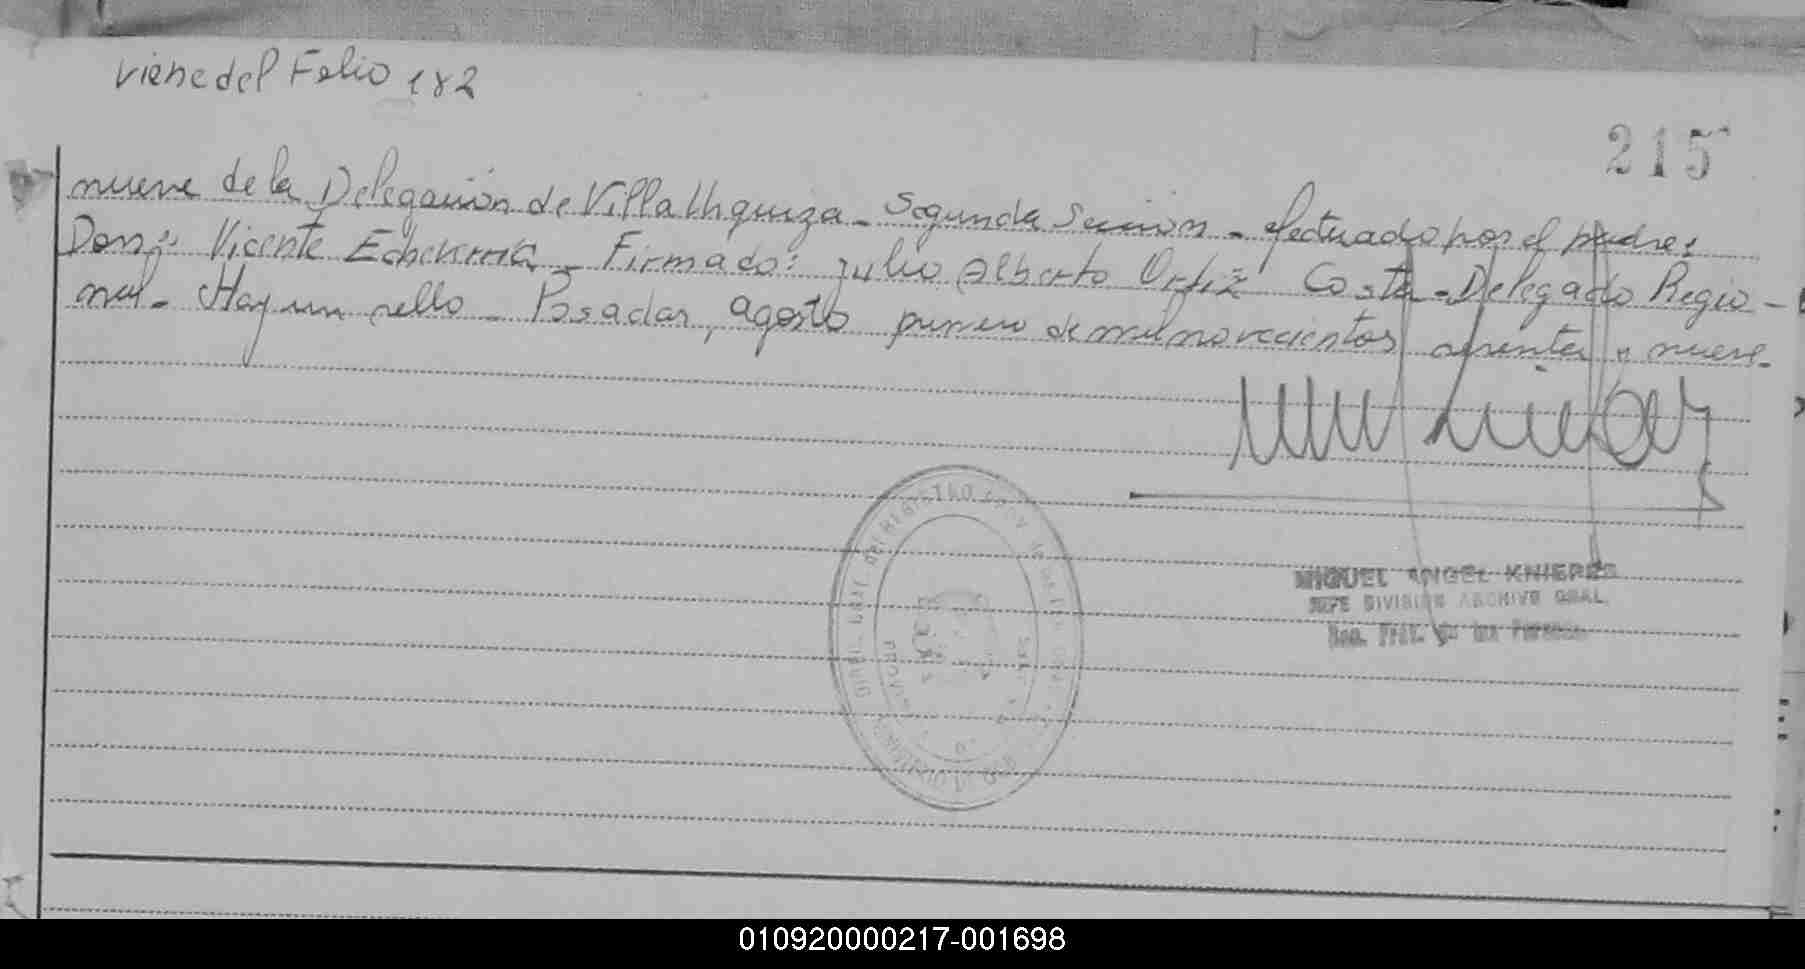 viene del Folio 182
215
nueve de la Delegación de Villa Urquiza - Segunda Sección - efectuado por el padre:
Don: Vicente Echeverría - Firmado: Julio Alberto Ortiz Costa - Delegado Regio-
nal - Hay un sello - Posadas, agosto primero de mil novecientos setenta y nueve.
MIGUEL ANGEL KNIEPES
JEFE DIVISION ARCHIVO GRAL.
010920000217-001698